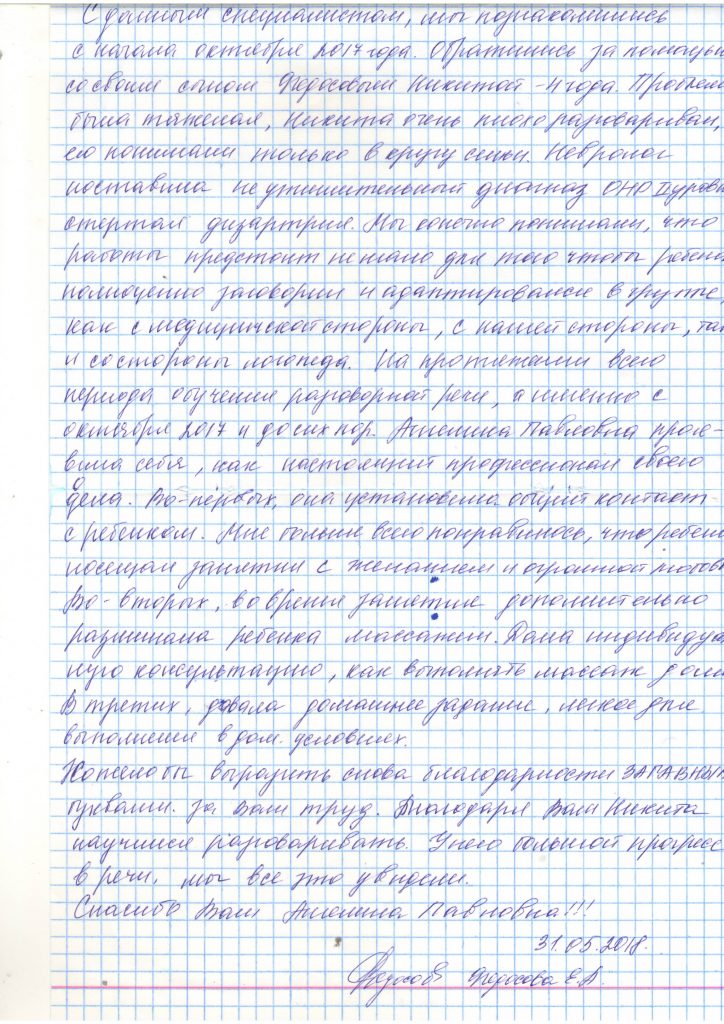 С данным специалистом, мы познакомились
с начала октября 2017 года. Обратились за помощью
со своим сыном Федосовым Никитой - 4 года. Проблема
была тяжелая, Никита очень плохо разговаривал,
его понимали только в кругу семьи. Невролог
поставила не утешительный диагноз ОНР II уровн
стертая дизартрия. Мы конечно понимали, что
работы предстоит немало для того чтобы ребено
полноценно заговорил и адаптировался в группе,
как с медицинской стороны, с нашей стороны, так
и со стороны логопеда. На протяжении всего
периода обучения разговорной речи, а именно с
октября 2017 и до сих пор. Ангелина Павловна проя-
вила себя, как настоящий профессионал своего
дела. Во-первых, она установила общий контакт
с ребенком. Мне больше всего понравилось, что ребено
посещал занятия с желанием и огромной любовь
Во-вторых, во время занятия дополнительно
разминала ребенка массажем. Дала индивидуал
ную консультацию, как выполнять массаж дома
В третих, давала домашнее задание, легкое для
выполнения в дом. условиях.
Хотело бы выразить слова благодарности ЗАГАВНЫМ
буквами. за Вам труд. Благодаря Вам Никита
научился разговаривать. У него большой прогресс
в речи, мы все это увидели.
Спасибо Вам Ангелина Павловна!!!
31.05.2018.
Федосова Е.А.